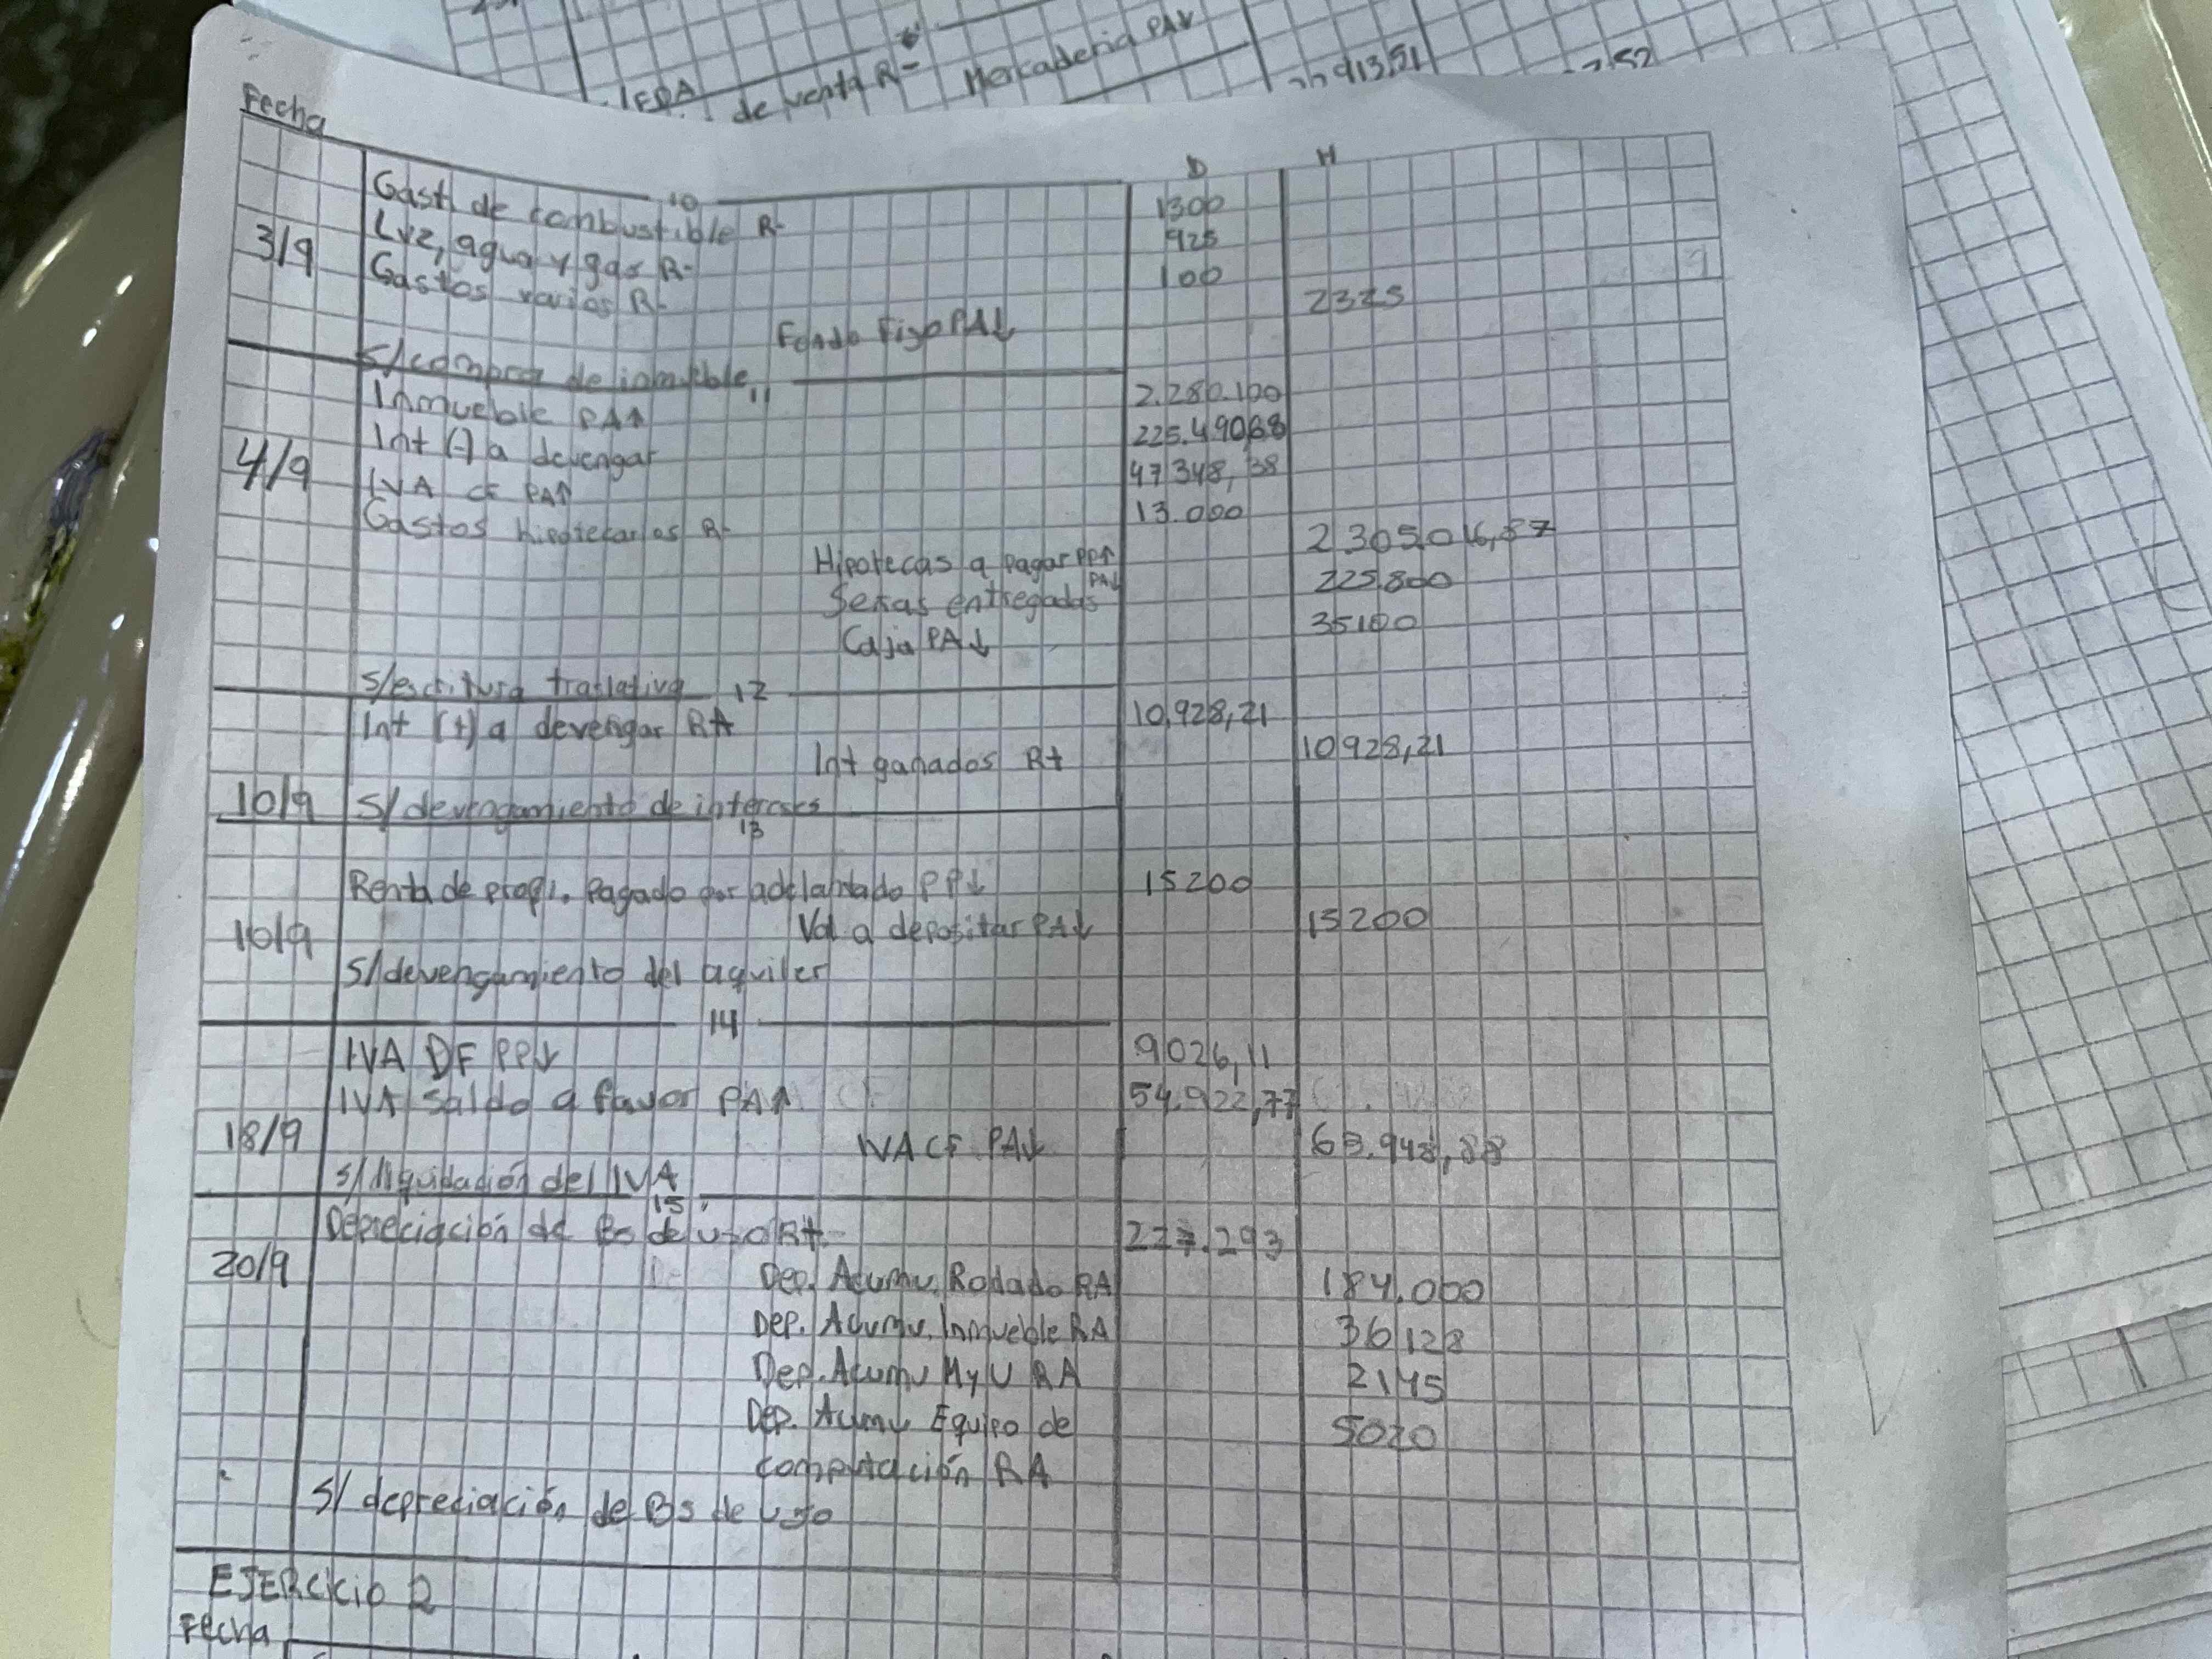 de venta R- Mercaderia PA↓
Fecha
D H
10
Gast. de combustible R- 1300
3/9 Luz, agua y gas R- 925
Gastos varios R- 100
Fondo Figo PA↓ 2325
S/compra de inmueble
11
Inmueble PA↑ 2.280.100
Int (-) a devengar 225.490,68
4/9 IVA CF PA↑ 47348,38
Gastos hipotecarios R- 13.000
Hipotecas a pagar PP↑ 2305.016,87
Señas entregadas PA↓ 225.800
Caja PA↓ 35100
S/escritura traslativa
12
Int (+) a devengar RA 10.928,21
Int ganados R+ 10928,21
10/9 S/devengamiento de intereses
13
Renta de propi. Pagado por adelantado PP↓ 15200
10/9 Val a depositar PA↓ 15200
S/devengamiento del aquiler
14
IVA DF PP↓ 9026,11
IVA Saldo a favor PA↑ 54.922,77
18/9 IVA CF PA↓ 63.948,88
S/liquidación del IVA
15
Depreciación de Bs de uso R+ 227.293
20/9 Dep. Acumu. Rodado RA 184.000
Dep. Acumu. Inmueble RA 36128
Dep. Acumu MyU RA 2145
Dep. Acumu Equipo de 5020
computación RA
S/ depreciación de Bs de uso
EJERCICIO 2
Fecha